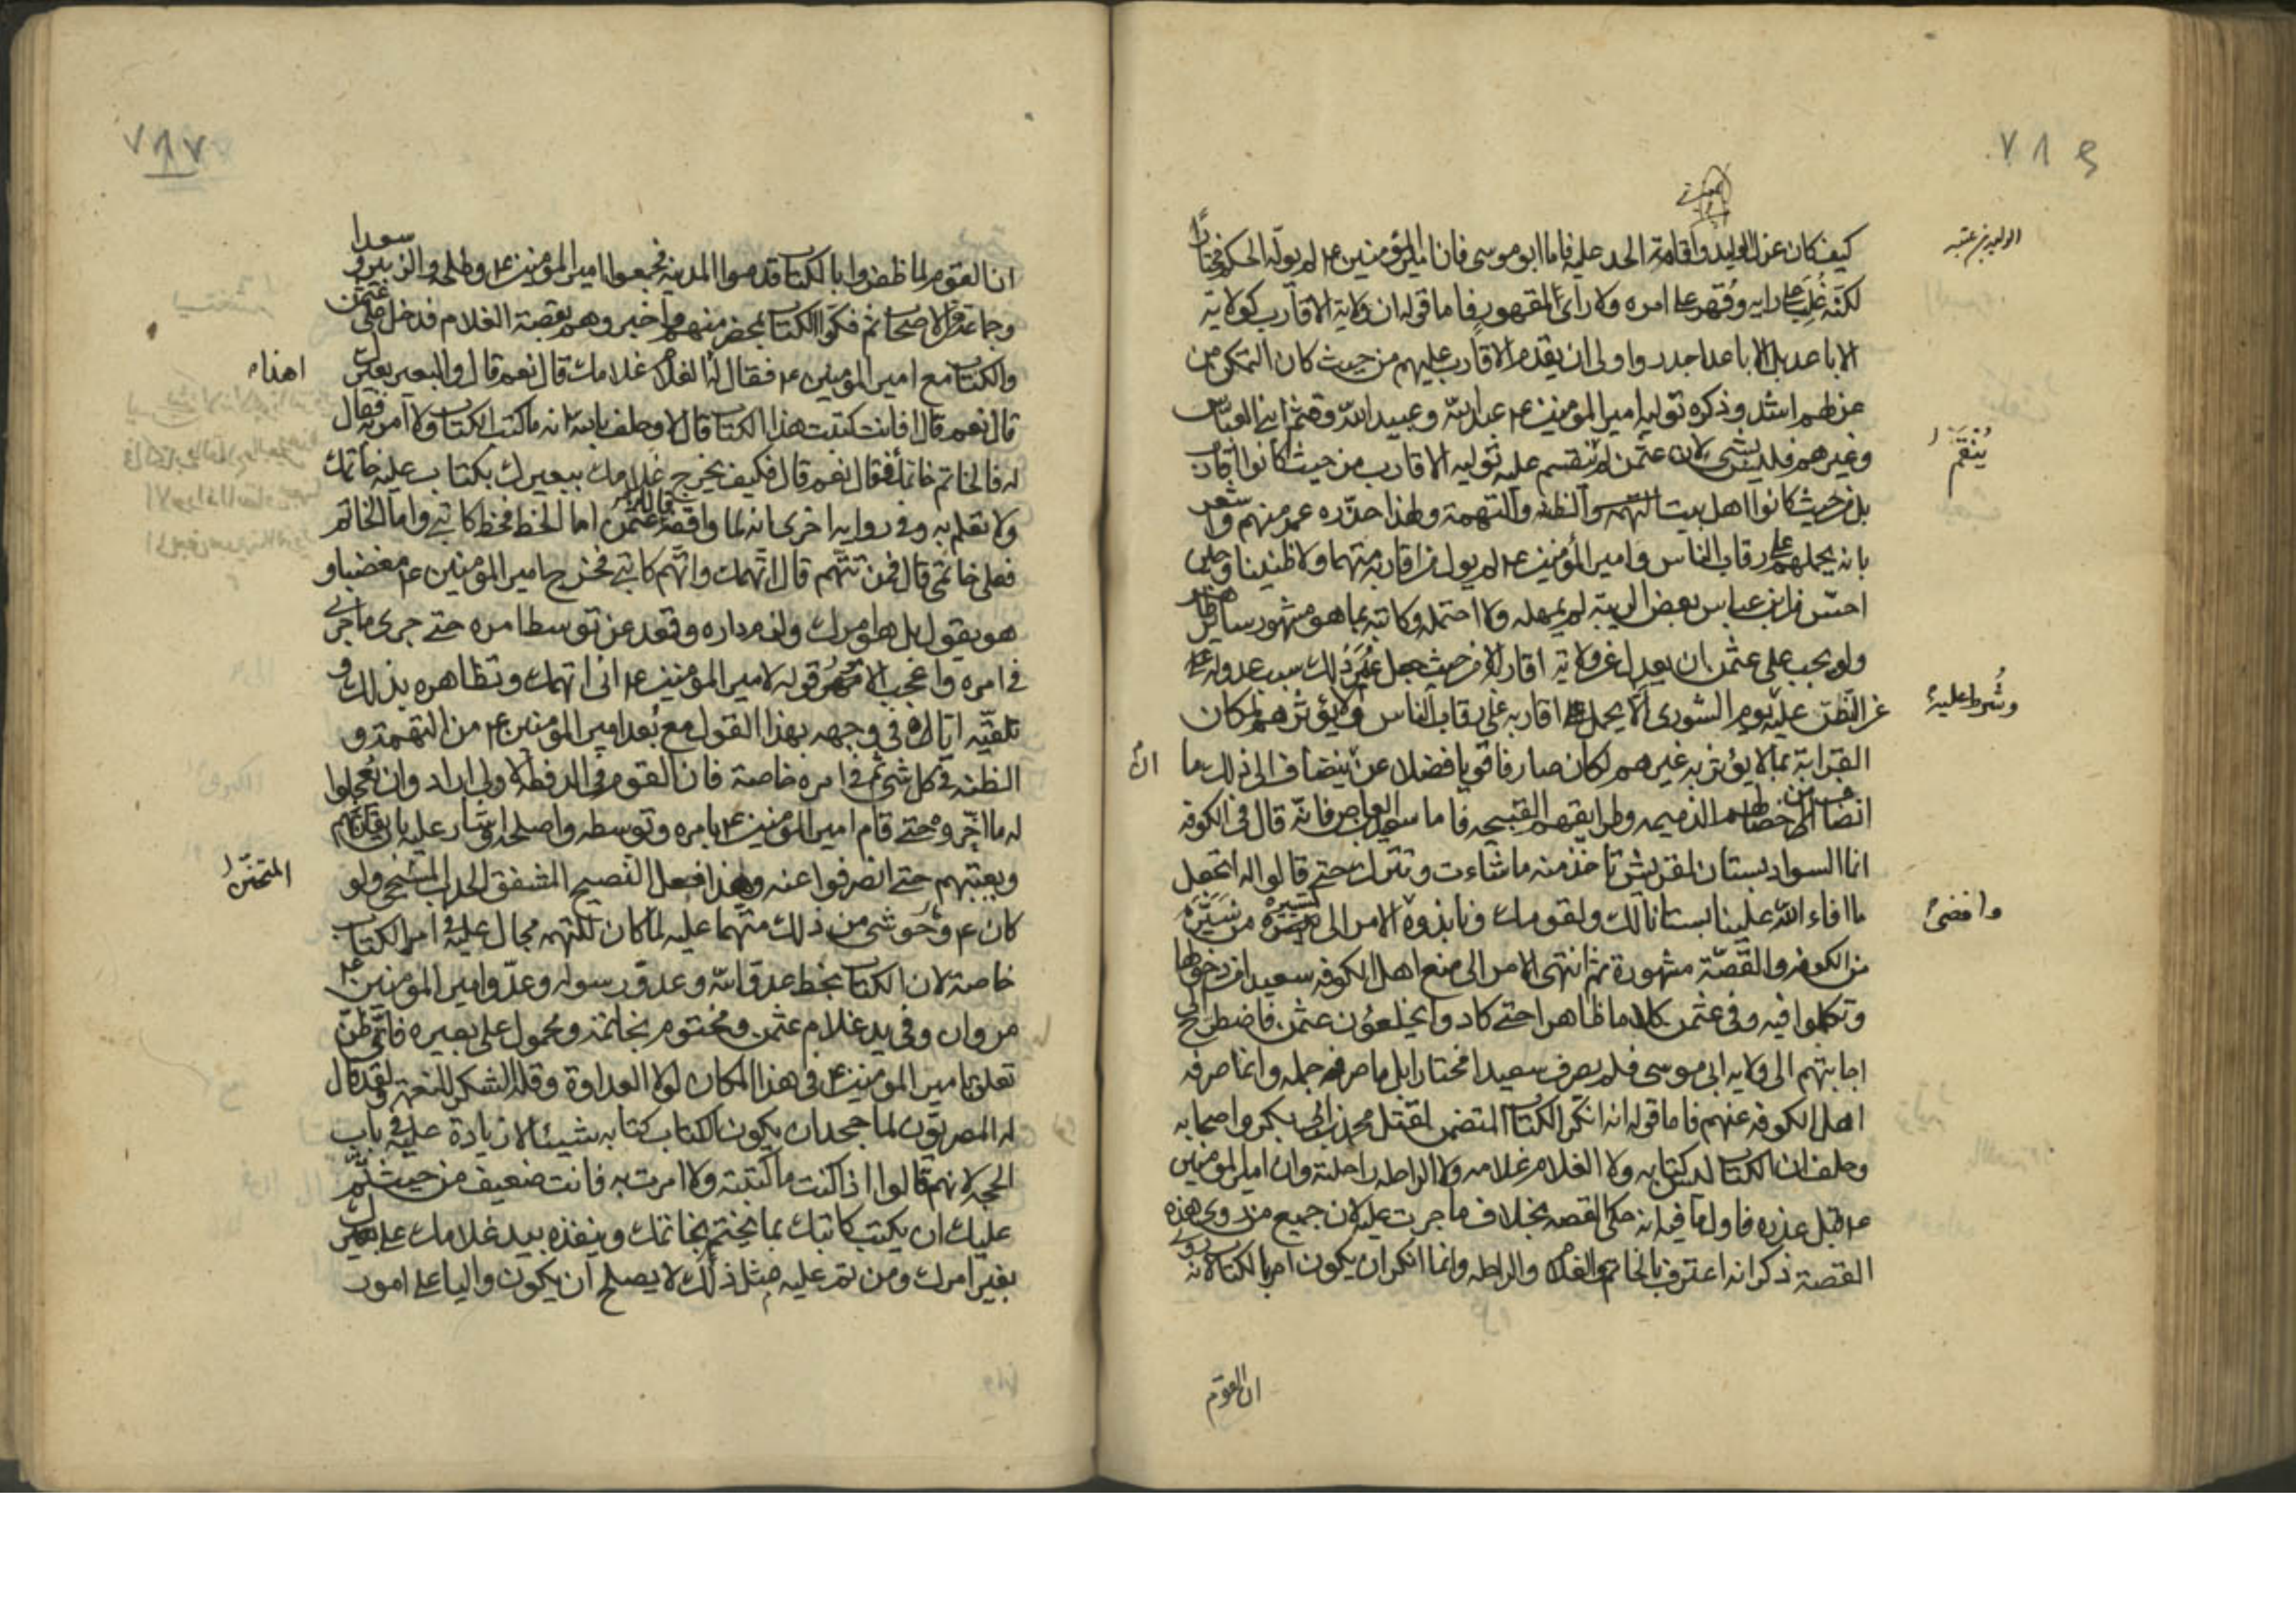 ٧١٤
الوليد بن عتبة
كيف كان عزل الوليد واقامة الحد عليه فاما ابو موسى فان امير المؤمنين ع لم يوله الحكم مختارا
لكنه غلب على رايه وقهر على امره ولا راى لمقهور فاما قوله ان ولاية الاقارب كولاية
الاباعد بل الاباعد اجدر واولى ان يقدم الاقارب عليهم من حيث كان التمكن من
عزلهم اشد وذكره تولية امير المؤمنين ع عبد الله وعبيد الله وقثم ابنى العباس
وغيرهم فليس بشى لان عثمن لم ينقم عليه تولية الاقارب من حيث كانوا اقارب
يُنقَم
بل من حيث كانوا اهل بيت التهمة والظنة والتهمة ولهذا حذره عمر منهم واشعر
بانه يحملهم على رقاب الناس وامير المؤمنين ع لم يول من اقاربه متهما ولا ظنينا وحين
احس من ابن عباس بعض الريبة لم يمهله ولا احتمله وكاتبه بما هو مشهور ساير ظاهر
ولو لم يجب على عثمن ان يعدل عن ولاية اقاربه الا من حيث جعل عمر ذلك سبب عدوله
عن النظر عليه يوم الشورى الا يحمل اقاربه على رقاب الناس ولا يؤثرهم لمكان
وشرط عليه
القرابة بما لا يؤثر به غيرهم لكان صارفا قويا فضلا عن ينضاف الى ذلك ما
ان
انضاف من خصالهم الذميمة وطرايقهم القبيحه فاما سعيد بن العاص فانه قال فى الكوفة
انما السواد بستان لقريش تاخذ منه ما شاءت وتترك حتى قالوا له اتجعل
ما افاء الله علينا بستانا لك ولقومك ونابذوه الامر الى تسييره من سيره
وافضى
من الكوفه والقصة مشهورة ثم انتهى الامر الى منع اهل الكوفه سعيدا من دخولها
وتكلموا فيه وفى عثمن كلاما ظاهرا حتى كادوا يخلعون عثمن فاضطر الى
اجابتهم الى ولاية ابى موسى فلم يصرف سعيدا مختارا بل ما صرفه جملة وانما صرفه
اهل الكوفه عنهم فاما قوله انه انكر الكتاب المتضمن لقتل محمد بن ابى بكر واصحابه
وحلف ان الكتاب ليس كتابه ولا الغلام غلامه ولا الراحله راحلته وان امير المؤمنين
ع قبل عذره فاول ما فيه انه حكى القصه بخلاف ما جرت عليه لان جميع من روى هذه
القصة ذكر انه اعترف بالخاتم والغلام والراحله وانما انكر ان يكون امر بالكتاب لانه روى
ان القوم
ان القوم لما ظفروا بالكتاب قدموا المدينه فجمعوا امير المؤمنين ع وطلحه والزبير وسعدا
وجماعة من الاصحاب ثم فكوا الكتاب بمحضر منهم واخبروهم بقصة الغلام فدخل على عثمن
والكتاب مع امير المؤمنين ع فقال له الغلام غلامك قال نعم قال والبعير بعيرك
اهذا
قال نعم قال افانت كتبت هذا الكتاب قال لا وحلف بالله انه ما كتب الكتاب ولا امر به فقال
له فالخاتم خاتمك فقال نعم قال فكيف يخرج غلامك ببعيرك بكتاب عليه خاتمك
ولا تعلم به وفى رواية اخرى انه لما واقفه عثمن اما الخط فخط كاتبى واما الخاتم
فعلى خاتمى قال فمن تتهم قال اتهمك واتهم كاتبى فخرج امير المؤمنين ع مغضبا و
هو يقول بل هو امرك ولزم داره وقعد عن توسط امره حتى جرى ما جرى
فى امره واعجب الامور قوله لامير المؤمنين ع انى اتهمك وتظاهره بذلك و
تلقيه اياه فى وجهه بهذا القول مع بعد امير المؤمنين ع من التهمة و
الظنه فى كل شى ثم فى امره خاصة فان القوم فى الدفعة الاولى ارادوا ان يعجلوا
له ما اخروه حتى قام امير المؤمنين ع بامره وتوسطه واصلحه واشار عليه بان يقاربهم
ويعتبهم حتى انصرفوا عنه وهذا فعل النصيح المشفق الحدب المتحنن ولو
المتحنن
كان ع وحوشى من ذلك متهما عليه لما كان للتهمه مجال عليه فى امر الكتاب
خاصة لان الكتاب بخط عدو الله وعدو رسوله وعدو امير المؤمنين ع
مروان وفى يد غلام عثمن ومختوم بخاتمة ومحمول على بعيره فاى ظن
تعلق بامير المؤمنين ع فى هذا المكان لولا العداوة وقلة الشكر للنعمه ولقد قال
له المصريون لما جحد ان يكون الكتاب كتابه شيئا لا زيادة عليه فى باب
الحجه لانهم قالوا اذا كنت ما كتبته ولا امرت به فانت ضعيف من حيث تم
عليك ان يكتب كاتبك بما يختم بخاتمك وينفذه بيد غلامك على بعيرك
بغير امرك ومن تم عليه مثل ذلك لا يصلح ان يكون واليا على امور